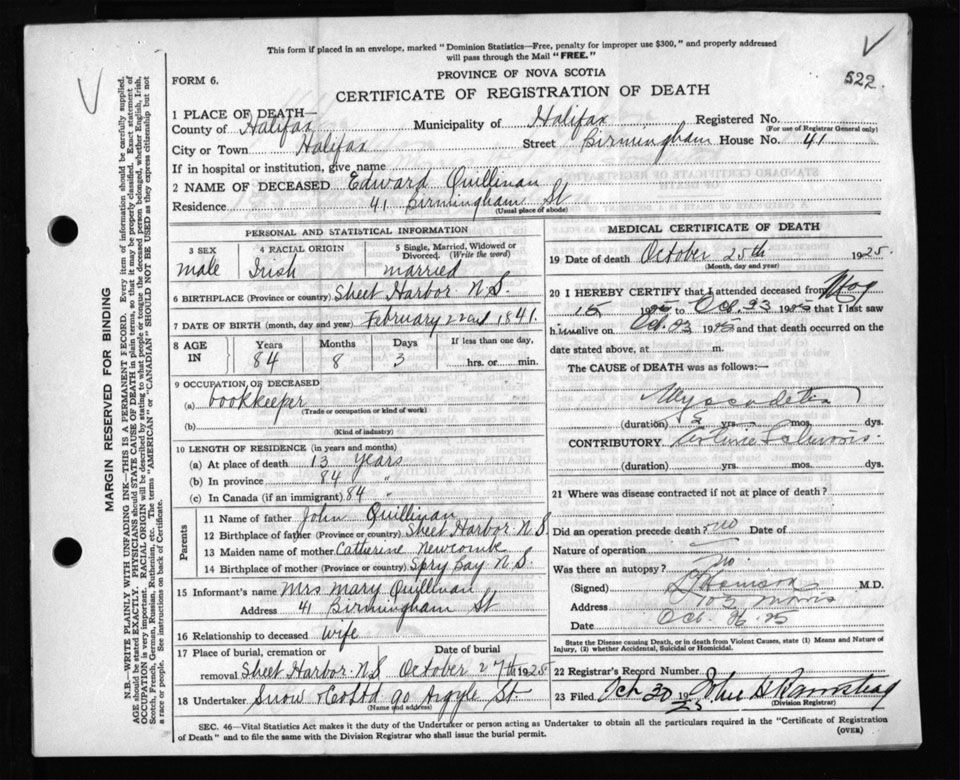 This form if placed in an envelope, marked "Dominion Statistics—Free, penalty for improper use $300," and properly addressed
will pass through the Mail "FREE."
522
FORM 6.
PROVINCE OF NOVA SCOTIA
CERTIFICATE OF REGISTRATION OF DEATH
1 PLACE OF DEATH—
County of Halifax Municipality of Halifax Registered No.
(For use of Registrar General only)
City or Town Halifax Street Birmingham House No. 41
If in hospital or institution, give name
2 NAME OF DECEASED Edward Quillinan
Residence 41 Birmingham St
(Usual place of abode)
MARGIN RESERVED FOR BINDING
N.B.—WRITE PLAINLY WITH UNFADING INK—THIS IS A PERMANENT RECORD. Every item of information should be carefully supplied.
AGE should be stated EXACTLY. PHYSICIANS should STATE CAUSE OF DEATH in plain terms, so that it may be properly classified. Exact statement of
OCCUPATION is very important. RACIAL ORIGIN will be described by stating to what people or tongue the deceased person belonged, whether English, Irish,
Scotch, French, German, Russian, Ruthenian, etc. The terms "AMERICAN" or "CANADIAN" SHOULD NOT BE USED as they express citizenship but not
a race or people. See instructions on back of Certificate.
PERSONAL AND STATISTICAL INFORMATION
3 SEX
male
4 RACIAL ORIGIN
Irish
5 Single, Married, Widowed or
Divorced. (Write the word)
married
6 BIRTHPLACE (Province or country) Sheet Harbor N.S.
7 DATE OF BIRTH (month, day and year) February 22nd 1841.
8 AGE IN
Years Months Days If less than one day,
84 8 3 hrs. or min.
9 OCCUPATION OF DECEASED
(a) bookkeeper
(Trade or occupation or kind of work)
(b)
(Kind of industry)
10 LENGTH OF RESIDENCE (in years and months)
(a) At place of death 13 years
(b) In province 84 "
(c) In Canada (if an immigrant) 84 "
Parents
11 Name of father John Quillinan
12 Birthplace of father (Province or country) Sheet Harbor N.S.
13 Maiden name of mother Catherine Newcomb
14 Birthplace of mother (Province or country) Spry Bay N.S.
15 Informant's name Mrs Mary Quillinan
Address 41 Birmingham St
16 Relationship to deceased Wife
17 Place of burial, cremation or Date of burial
removal Sheet Harbor N.S October 27th 1925
18 Undertaker Snow & Co Ltd 90 Argyle St
(Name and address)
MEDICAL CERTIFICATE OF DEATH
19 Date of death October 25th 1925.
(Month, day and year)
20 I HEREBY CERTIFY that I attended deceased from May
15 1925 to Oct. 23 1925 that I last saw
him alive on Oct. 23 1925 and that death occurred on the
date stated above, at m.
The CAUSE of DEATH was as follows:—
(duration) yrs. mos. dys.
CONTRIBUTORY
(duration) yrs. mos. dys.
21 Where was disease contracted if not at place of death?
Did an operation precede death? No Date of
Nature of operation
Was there an autopsy? No.
(Signed) M.D.
Address Morris
Date Oct. 26. 25
State the Disease causing Death, or in death from Violent Causes, state (1) Means and Nature of
Injury, (2) whether Accidental, Suicidal or Homicidal.
22 Registrar's Record Number
23 Filed Oct 30 1925 John
(Division Registrar)
SEC. 46—Vital Statistics Act makes it the duty of the Undertaker or person acting as Undertaker to obtain all the particulars required in the "Certificate of Registration
of Death" and to file the same with the Division Registrar who shall issue the burial permit.
(OVER)